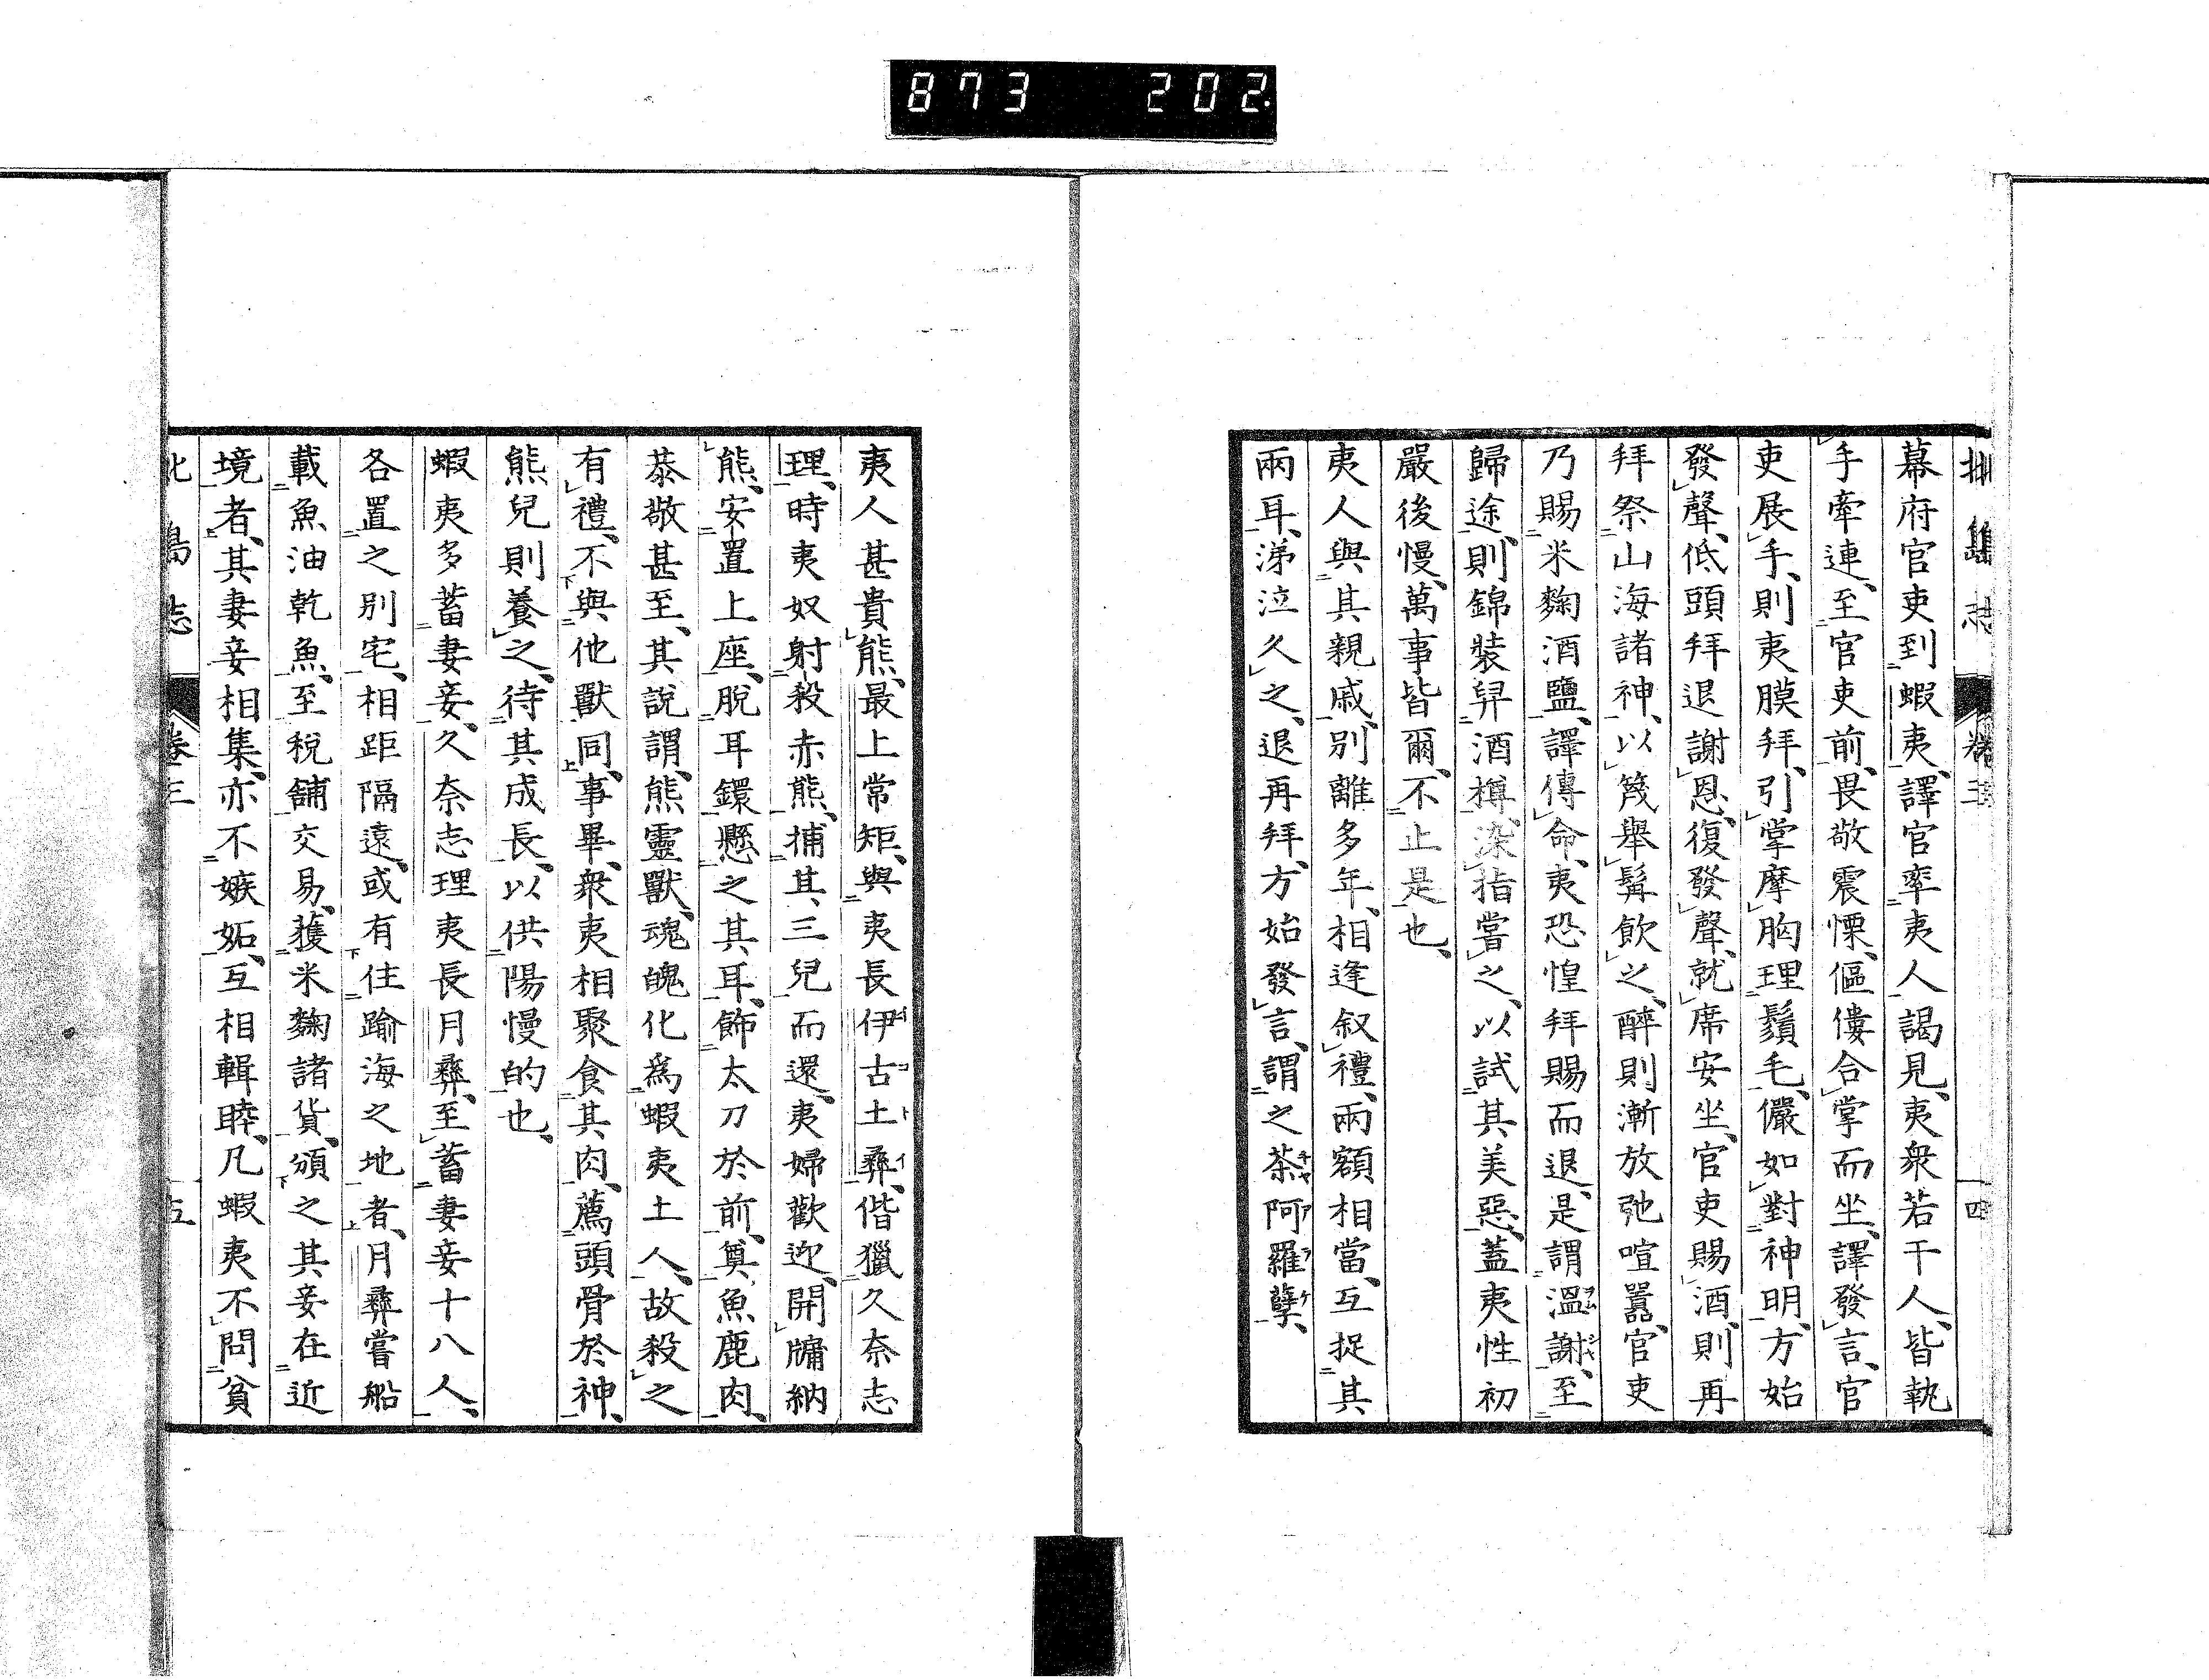 873 202
北島志 卷三 一四
幕府官吏到蝦夷、譯官率夷人謁見、夷衆若干人、皆執
手牽連、至官吏前、畏敬震慄、傴僂合掌而坐、譯發言、官
吏展手、則夷膜拜、引掌摩胸理鬚毛、儼如對神明、方始
發聲、低頭拜退謝恩、復發聲、就席安坐、官吏賜酒、則再
拜祭山海諸神、以篾舉髯飲之、醉則漸放弛喧囂、官吏
乃賜米麴酒鹽、譯傳命、夷恐惶拜賜而退、是謂溫謝、至
歸途、則錦裝舁酒樽、染指嘗之、以試其美惡、蓋夷性初
嚴後慢、萬事皆爾、不止是也、
夷人與其親戚、別離多年、相逢叙禮、兩額相當、互捉其
兩耳、涕泣久之、退再拜、方始發言、謂之茶阿羅孽、
夷人甚貴熊、最上常矩、與夷長伊古土彝、偕獵久奈志
理、時夷奴射殺赤熊、捕其三兒而還、夷婦歡迎、開牖納
熊、安置上座、脫耳鐶懸之其耳、飾太刀於前、奠魚鹿肉、
恭敬甚至、其說謂、熊靈獸、魂魄化爲蝦夷土人、故殺之
有禮、不與他獸同、事畢、衆夷相聚食其肉、薦頭骨於神、
熊兒則養之、待其成長、以供陽慢的也、
蝦夷多蓄妻妾、久奈志理夷長月彝、至蓄妻妾十八人、
各置之別宅、相距隔遠、或有住踰海之地者、月彝嘗船
載魚油乾魚、至稅舖交易、獲米麴諸貨、頒之其妾在近
境者、其妻妾相集、亦不嫉妬、互相輯睦、凡蝦夷不問貧
北島志 卷三 一五